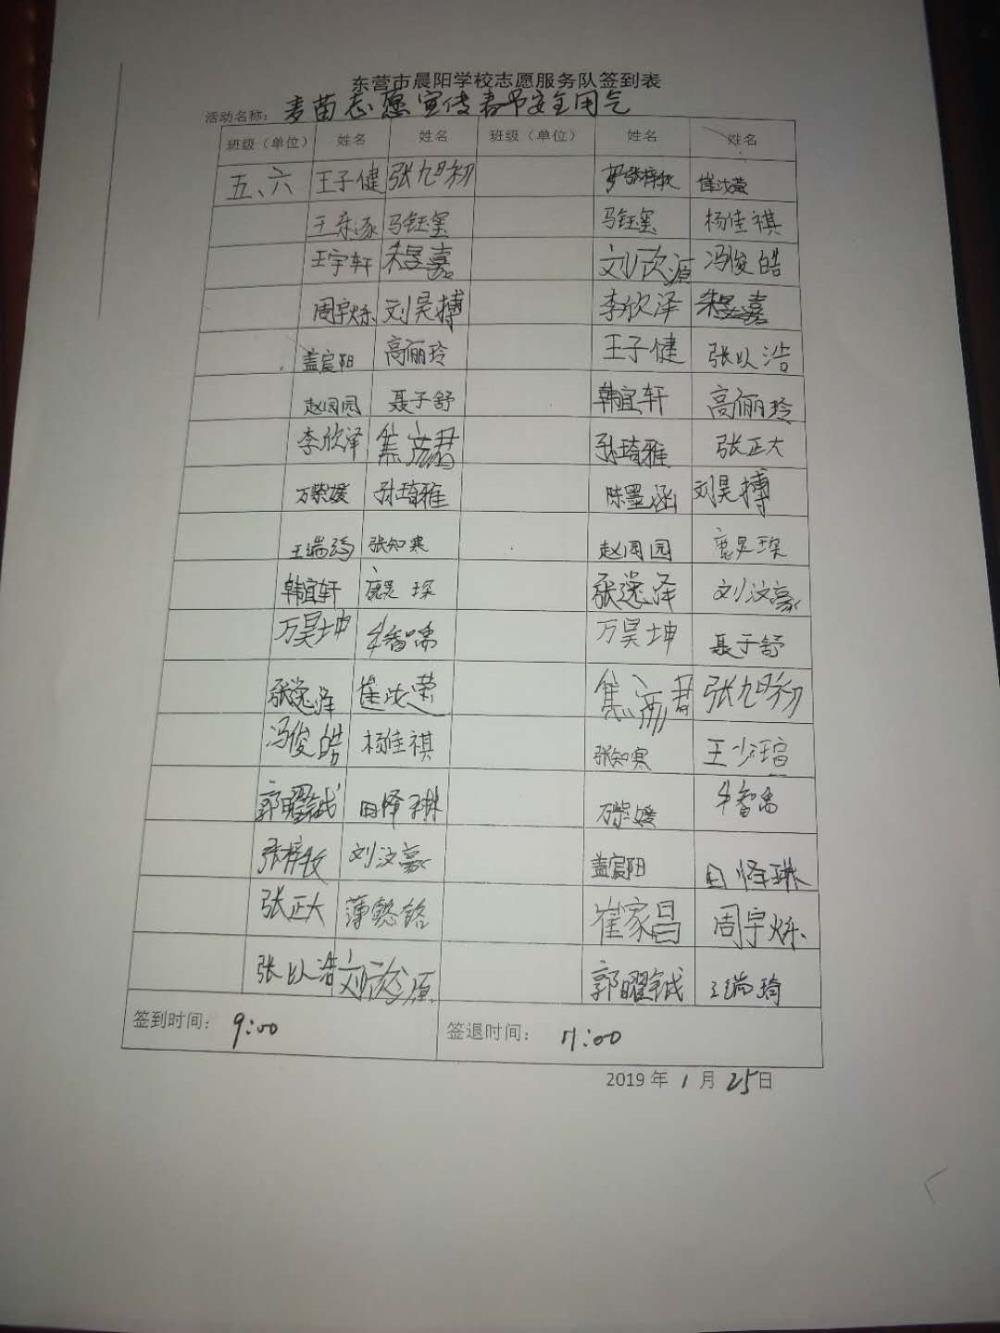 东营市晨阳学校志愿服务队签到表
活动名称：麦苗志愿宣传春节安全用气
班级（单位） 姓名 姓名 班级（单位） 姓名 姓名
五、六 王子健 张旭初 张梓牧
马钰玺 马钰玺 杨佳祺
王宇轩 刘欣源 冯俊皓
周宇烁 刘昊搏 李欣泽
盖宸阳 高俪玲 王子健 张以浩
赵园园 聂子舒 韩宜轩 高俪玲
李欣泽 孙琦雅 张正大
万紫媛 孙琦雅 陈墨涵 刘昊搏
王端琦 张知寒 赵园园 鹿昊琛
韩宜轩 鹿昊琛 张逸泽 刘汶豪
万昊坤 牟智霈 万昊坤 聂子舒
张逸泽 张旭初
冯俊皓 杨佳祺 张知寒 王少瑄
郭曜铖 田怿琳 万紫媛
张梓牧 刘汶豪 盖宸阳 田怿琳
张正大 薄懿铭 崔家昌 周宇烁
张以浩 刘欣源 郭曜铖 王端琦
签到时间： 9:00 签退时间： 11:00
2019 年 1 月 25 日